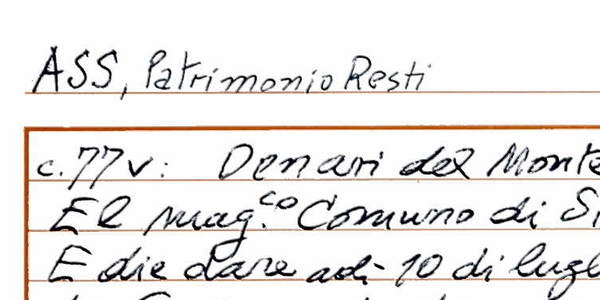 ASS, Patrimonio Resti
c.77v: Denari del Monte
El mag.co Comuno di Si
E die dare adi 10 di lugl